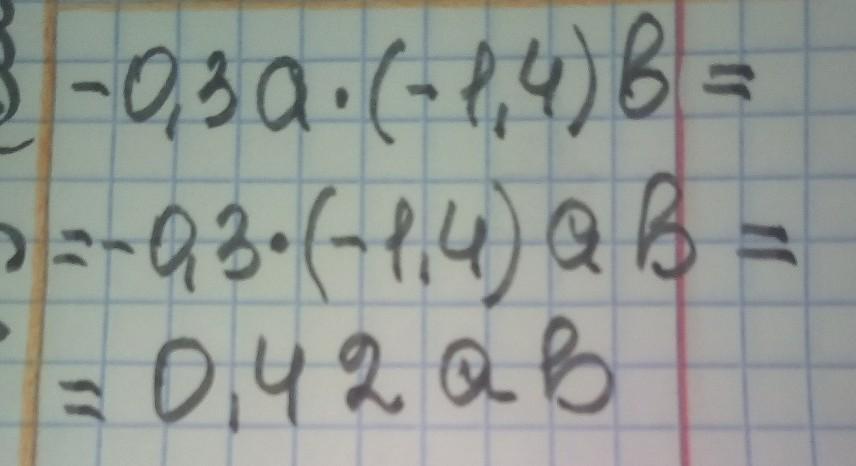 -0,3a·(-1,4)b=
=-0,3·(-1,4)ab=
=0,42ab